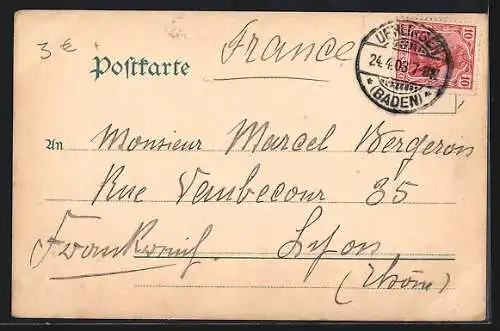 3 €
France
Postkarte
UEHLINGEN
24.4.03.7-8V.
* (BADEN) *
10 10
An Monsieur Marcel Bergeron
Rue Vaubecour 35
Frankreich Lyon
(Rhône)